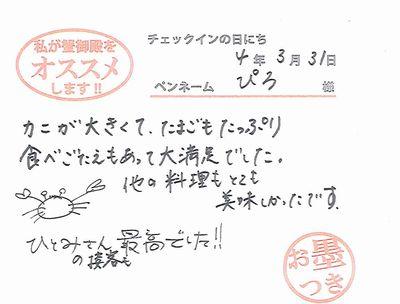 私が蟹御殿を
オススメ
します!!
チェックインの日にち
4年 3月 31日
ペンネーム ぴろ 様
カニが大きくて、たまごもたっぷり
食べごたえもあって大満足でした。
他の料理もとても
美味しかったです。
ひとみさん最高でした!!
の接客も
お墨
つき